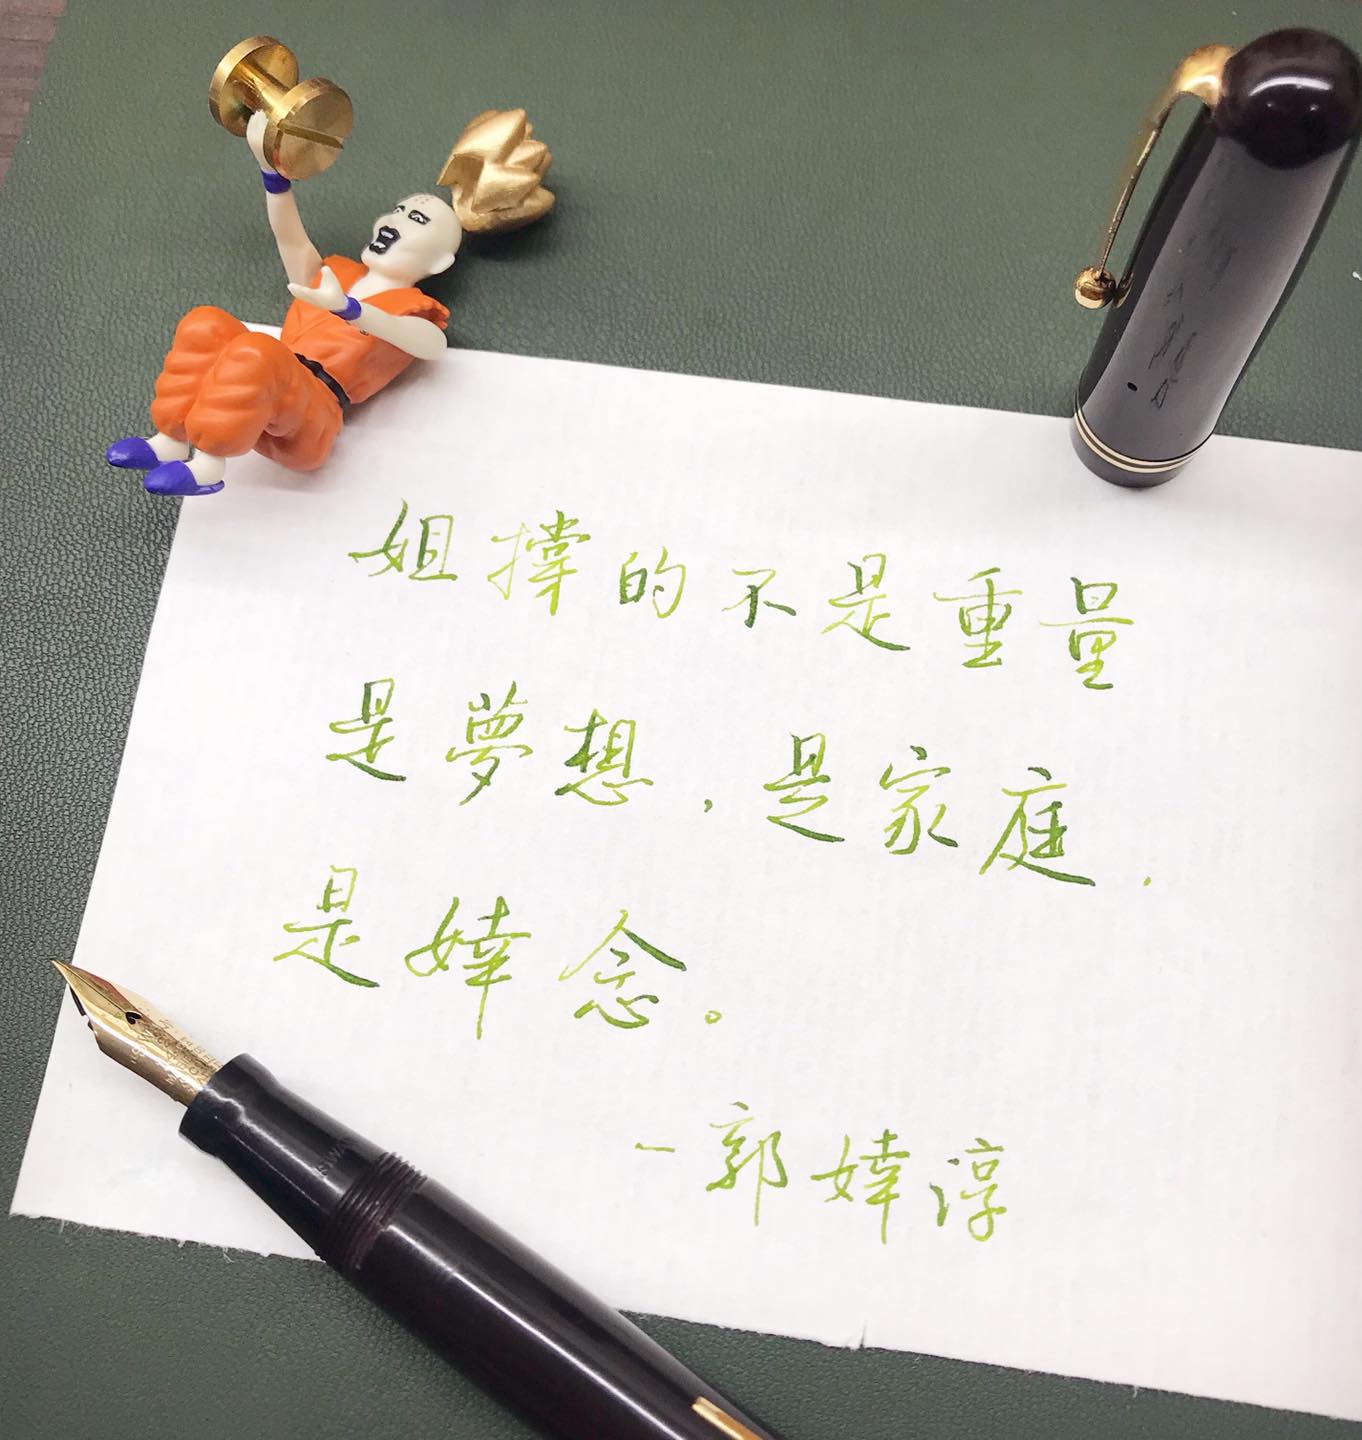 姐撐的不是重量
是夢想,是家庭,
是婞念。
－郭婞淳